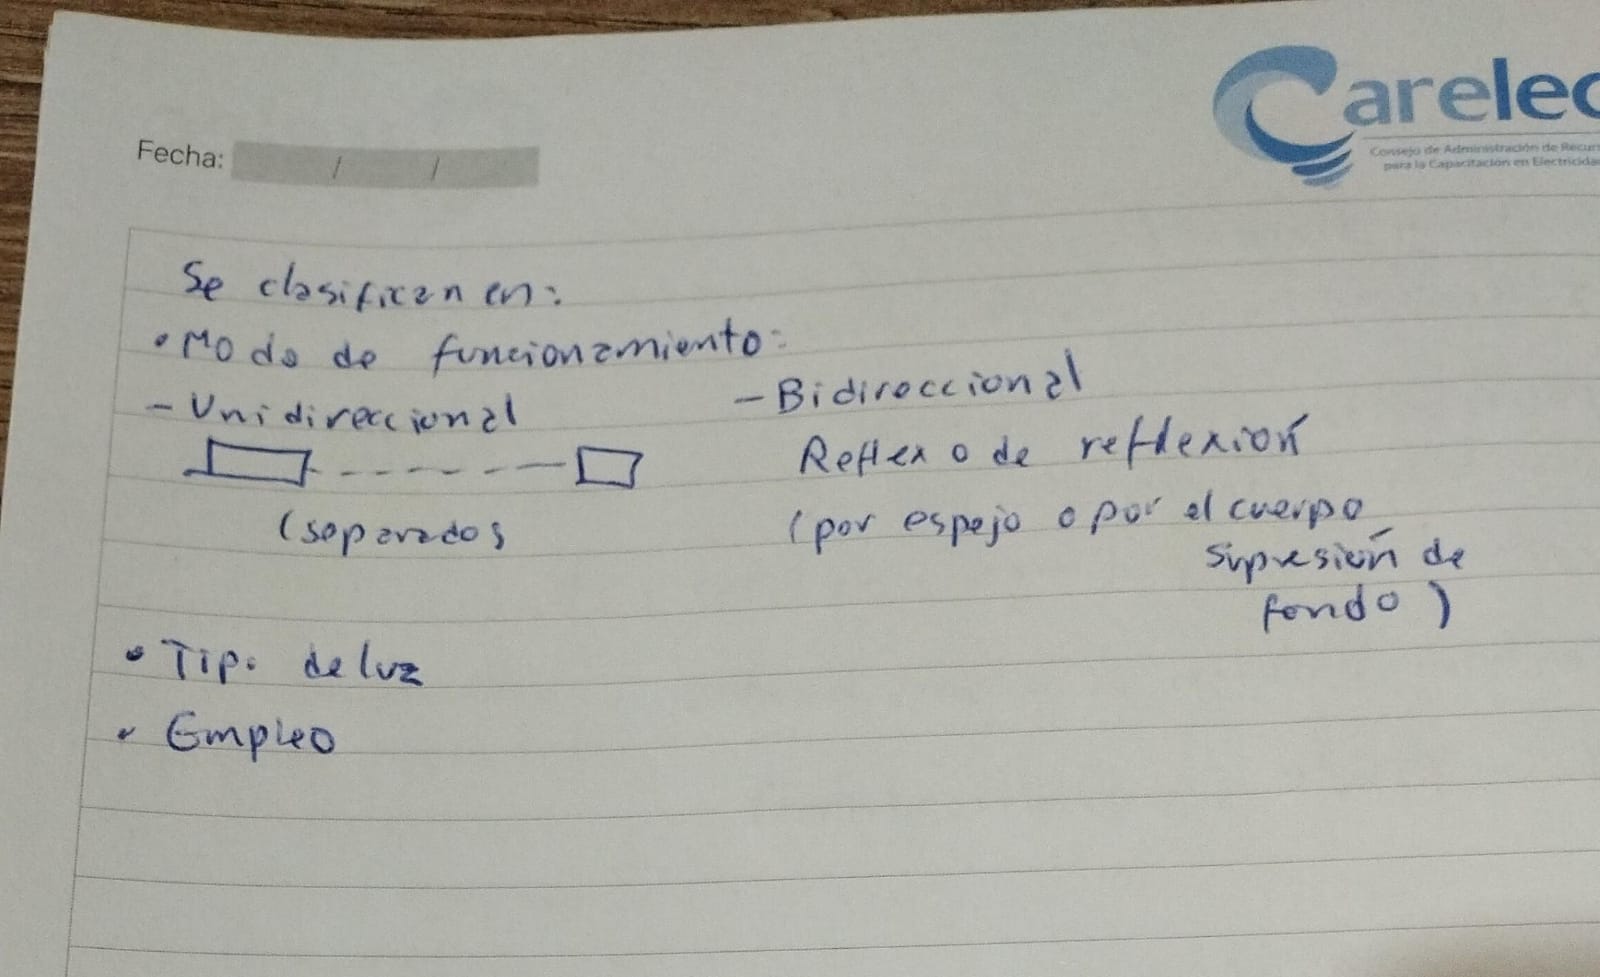 Carelec
Consejo de Administración de Recur
para la Capacitación en Electricida
Fecha: / /
Se clasifican en:
• Modo de funcionamiento:
- Unidireccional
- Bidireccional
Reflex o de reflexión
(por espejo o por el cuerpo
Supresión de
fondo)
(separados
• Tipo de luz
• Empleo